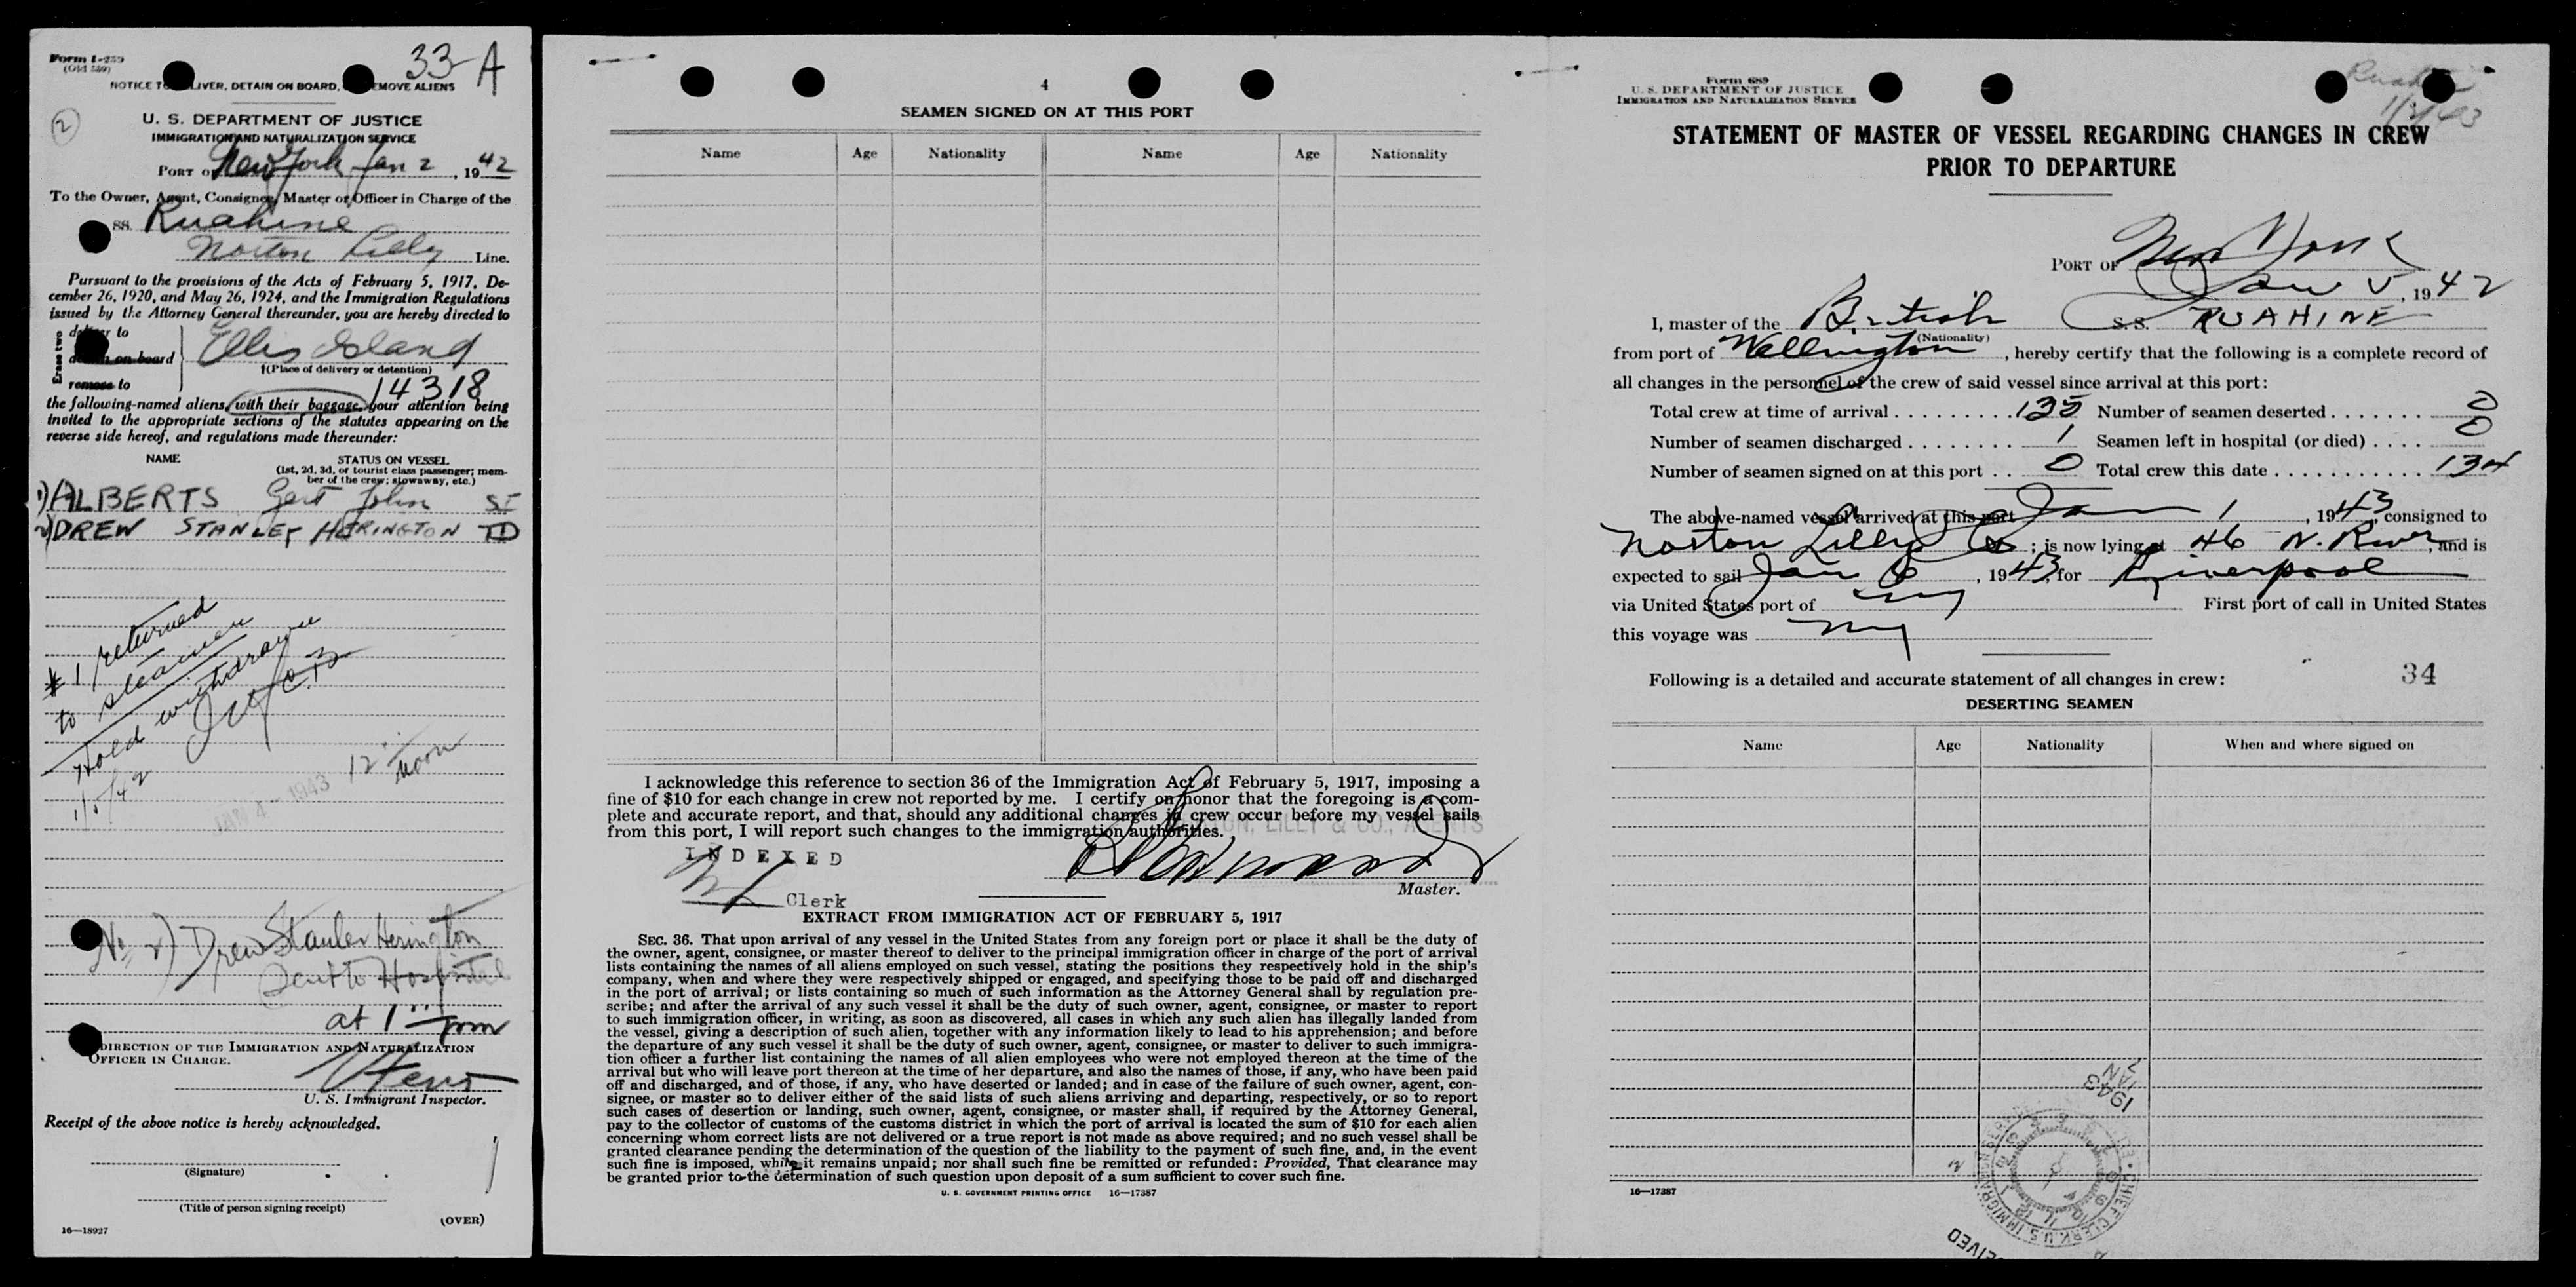 Form I-259
(Old 559)
33-A
NOTICE TO LIVER, DETAIN ON BOARD, EMOVE ALIENS
2
U. S. DEPARTMENT OF JUSTICE
IMMIGRATION AND NATURALIZATION SERVICE
PORT OF New York Jan 2, 1942
To the Owner, Agent, Consignee, Master or Officer in Charge of the
SS. Ruahine
Norton Lilly Line.
Pursuant to the provisions of the Acts of February 5, 1917, De-
cember 26, 1920, and May 26, 1924, and the Immigration Regulations
issued by the Attorney General thereunder, you are hereby directed to
Erase two
deliver to
detain on board
remove to
Ellis Island
†(Place of delivery or detention)
14318
the following-named aliens, with their baggage, your attention being
invited to the appropriate sections of the statutes appearing on the
reverse side hereof, and regulations made thereunder:
NAME
STATUS ON VESSEL
(1st, 2d, 3d, or tourist class passenger; mem-
ber of the crew; stowaway, etc.)
1) ALBERTS Gert John SI
2) DREW STANLEY HERINGTON TD
#1 returned
to steamer
Hold withdrawn
1/5/42
JAN 4 - 1943
12 noon
No. 2) Drew Stanley Herington
Sent to Hospital
at 1 pm
DIRECTION OF THE IMMIGRATION AND NATURALIZATION
OFFICER IN CHARGE.
U. S. Immigrant Inspector.
Receipt of the above notice is hereby acknowledged.
(Signature)
(Title of person signing receipt)
16—18927
(OVER)
4
SEAMEN SIGNED ON AT THIS PORT
Name Age Nationality Name Age Nationality
I acknowledge this reference to section 36 of the Immigration Act of February 5, 1917, imposing a
fine of $10 for each change in crew not reported by me. I certify on honor that the foregoing is a com-
plete and accurate report, and that, should any additional changes in crew occur before my vessel sails
from this port, I will report such changes to the immigration authorities.
LILLY & CO., AGENTS
INDEXED
Clerk
Master.
EXTRACT FROM IMMIGRATION ACT OF FEBRUARY 5, 1917
SEC. 36. That upon arrival of any vessel in the United States from any foreign port or place it shall be the duty of
the owner, agent, consignee, or master thereof to deliver to the principal immigration officer in charge of the port of arrival
lists containing the names of all aliens employed on such vessel, stating the positions they respectively hold in the ship's
company, when and where they were respectively shipped or engaged, and specifying those to be paid off and discharged
in the port of arrival; or lists containing so much of such information as the Attorney General shall by regulation pre-
scribe; and after the arrival of any such vessel it shall be the duty of such owner, agent, consignee, or master to report
to such immigration officer, in writing, as soon as discovered, all cases in which any such alien has illegally landed from
the vessel, giving a description of such alien, together with any information likely to lead to his apprehension; and before
the departure of any such vessel it shall be the duty of such owner, agent, consignee, or master to deliver to such immigra-
tion officer a further list containing the names of all alien employees who were not employed thereon at the time of the
arrival but who will leave port thereon at the time of her departure, and also the names of those, if any, who have been paid
off and discharged, and of those, if any, who have deserted or landed; and in case of the failure of such owner, agent, con-
signee, or master so to deliver either of the said lists of such aliens arriving and departing, respectively, or so to report
such cases of desertion or landing, such owner, agent, consignee, or master shall, if required by the Attorney General,
pay to the collector of customs of the customs district in which the port of arrival is located the sum of $10 for each alien
concerning whom correct lists are not delivered or a true report is not made as above required; and no such vessel shall be
granted clearance pending the determination of the question of the liability to the payment of such fine, and, in the event
such fine is imposed, while it remains unpaid; nor shall such fine be remitted or refunded: Provided, That clearance may
be granted prior to the determination of such question upon deposit of a sum sufficient to cover such fine.
U. S. GOVERNMENT PRINTING OFFICE 16—17387
Form 689
U. S. DEPARTMENT OF JUSTICE
IMMIGRATION AND NATURALIZATION SERVICE
STATEMENT OF MASTER OF VESSEL REGARDING CHANGES IN CREW
PRIOR TO DEPARTURE
PORT OF New York
Jan 5, 1942
I, master of the British S. S. RUAHINE
(Nationality)
from port of Wellington, hereby certify that the following is a complete record of
all changes in the personnel of the crew of said vessel since arrival at this port:
Total crew at time of arrival . . . . . . . . . 135 Number of seamen deserted . . . . . . . 0
Number of seamen discharged . . . . . . . . 1 Seamen left in hospital (or died) . . . . 0
Number of seamen signed on at this port . . 0 Total crew this date . . . . . . . . . . . . 134
The above-named vessel arrived at this port Jan 1, 1943, consigned to
Norton Lilly Co; is now lying at 46 N. River, and is
expected to sail Jan 6, 1943, for Liverpool
via United States port of ny First port of call in United States
this voyage was ny
Following is a detailed and accurate statement of all changes in crew: 34
DESERTING SEAMEN
Name Age Nationality When and where signed on
JAN
1943
CHIEF CLERK U.S. IMMIGRATION
16—17387